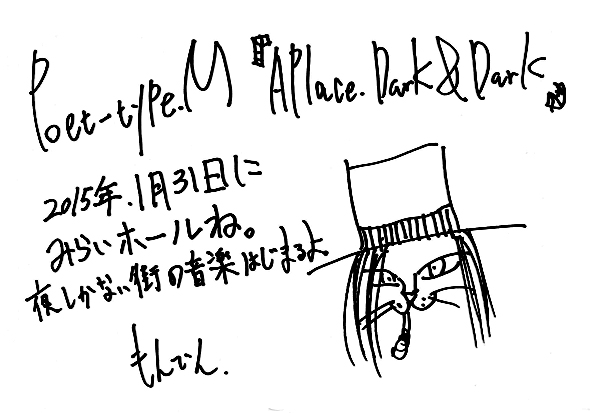 Poet-type.M 『A Place, Dark & Dark』
2015年.1月31日に
みらいホールね。
夜しかない街の音楽はじまるよ
もんでん.